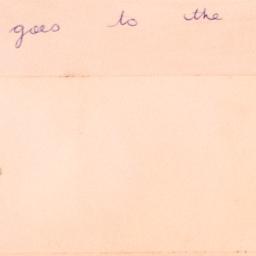 goes to the